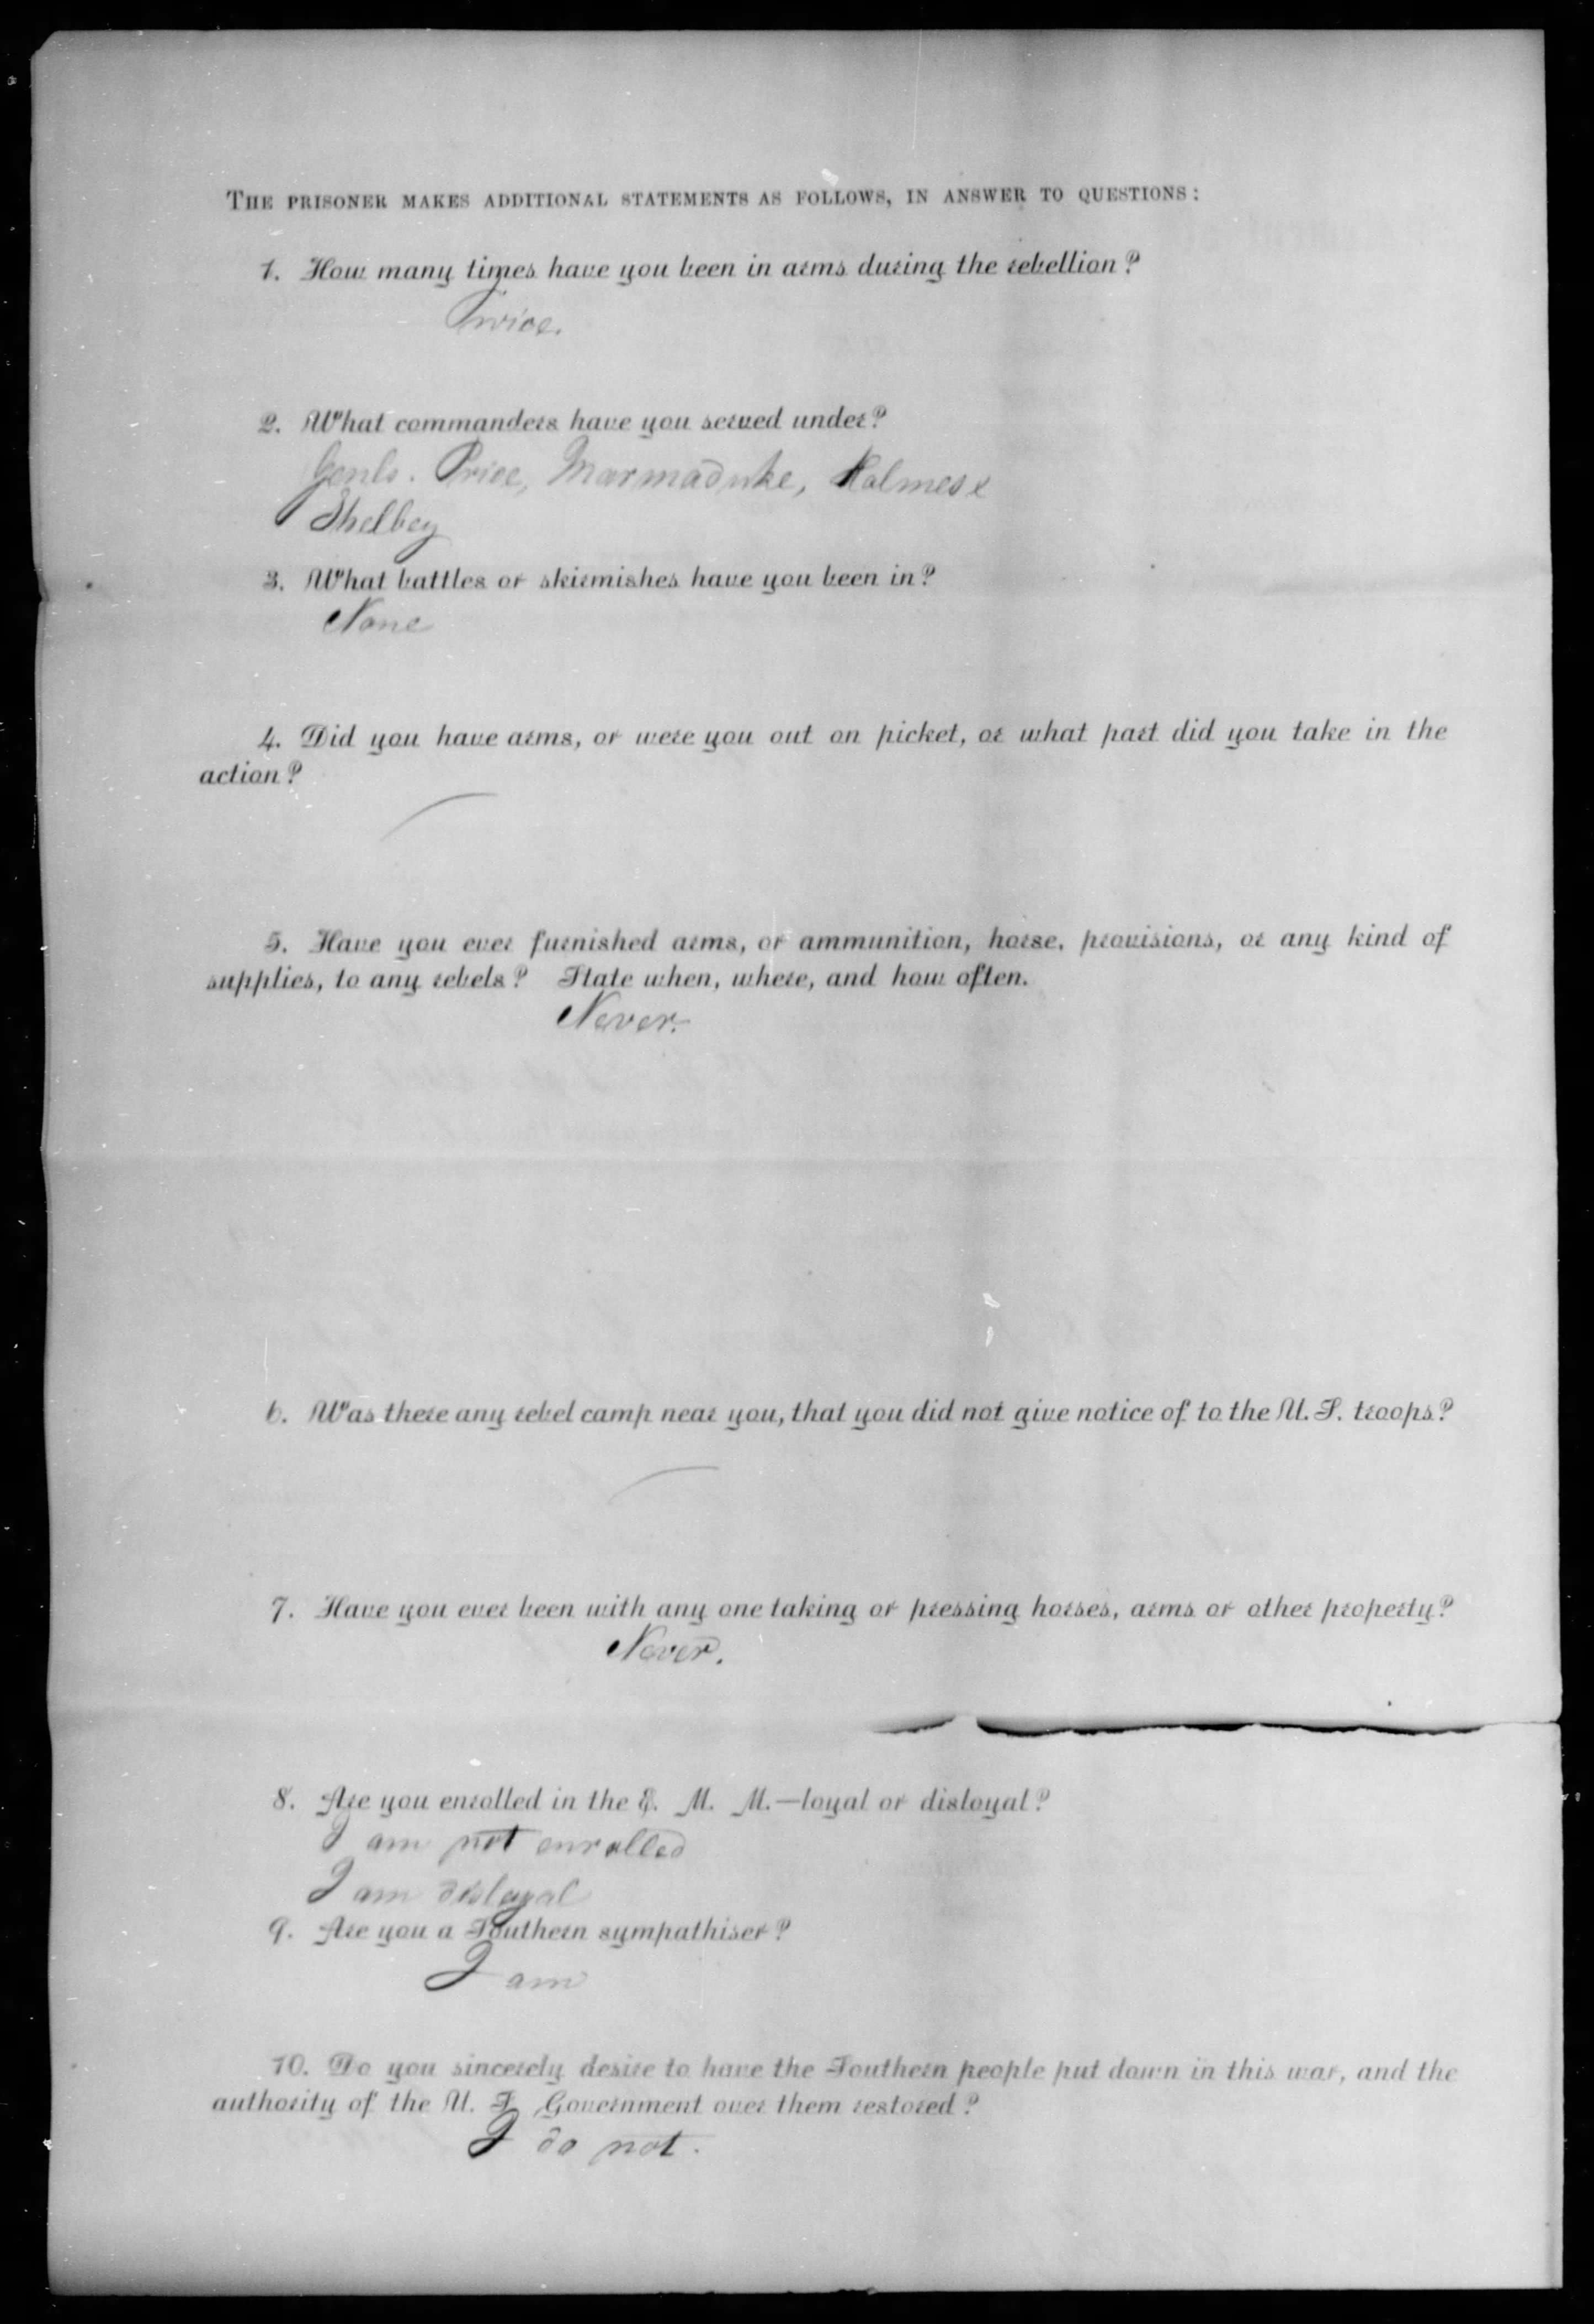 THE PRISONER MAKES ADDITIONAL STATEMENTS AS FOLLOWS, IN ANSWER TO QUESTIONS:
1. How many times have you been in arms during the rebellion?
Twice.
2. What commanders have you served under?
Genls. Price, Marmaduke, Holmes &
Shelbey
3. What battles or skirmishes have you been in?
None
4. Did you have arms, or were you out on picket, or what part did you take in the
action?
5. Have you ever furnished arms, or ammunition, horse, provisions, or any kind of
supplies, to any rebels? State when, where, and how often.
Never.
6. Was there any rebel camp near you, that you did not give notice of to the U. S. troops?
7. Have you ever been with any one taking or pressing horses, arms or other property?
Never.
8. Are you enrolled in the E. M. M.—loyal or disloyal?
I am not enrolled
I am disloyal
9. Are you a Southern sympathiser?
I am
10. Do you sincerely desire to have the Southern people put down in this war, and the
authority of the U. S. Government over them restored?
I do not.